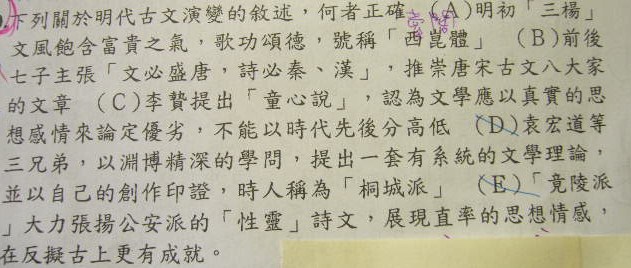 .下列關於明代古文演變的敘述，何者正確 (A)明初「三楊」
文風飽含富貴之氣，歌功頌德，號稱「西崑體」 (B)前後
七子主張「文必盛唐，詩必秦、漢」，推崇唐宋古文八大家
的文章 (C)李贄提出「童心說」，認為文學應以真實的思
想感情來論定優劣，不能以時代先後分高低 (D)袁宏道等
三兄弟，以淵博精深的學問，提出一套有系統的文學理論，
並以自己的創作印證，時人稱為「桐城派」 (E)「竟陵派
」大力張揚公安派的「性靈」詩文，展現直率的思想情感，
在反擬古上更有成就。